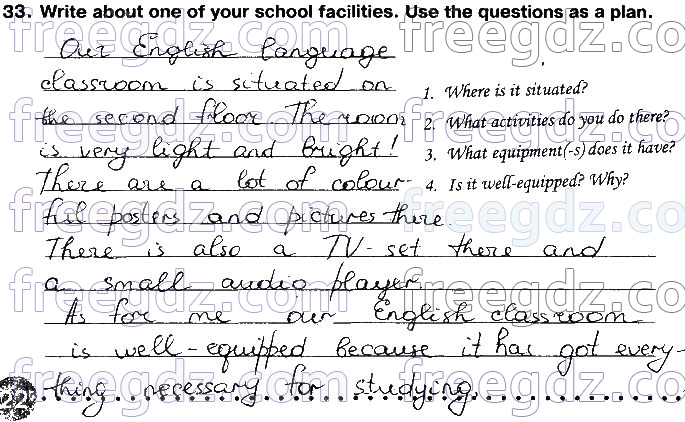 33. Write about one of your school facilities. Use the questions as a plan.
Our English language
classroom is situated on
the second floor. The room
is very light and bright!
There are a lot of colour-
ful posters and pictures there.
There is also a TV-set there and
a small audio player.
As for me our English classroom
is well-equipped because it has got every-
thing necessary for studying.
1. Where is it situated?
2. What activities do you do there?
3. What equipment(-s) does it have?
4. Is it well-equipped? Why?
22
freegdz.com